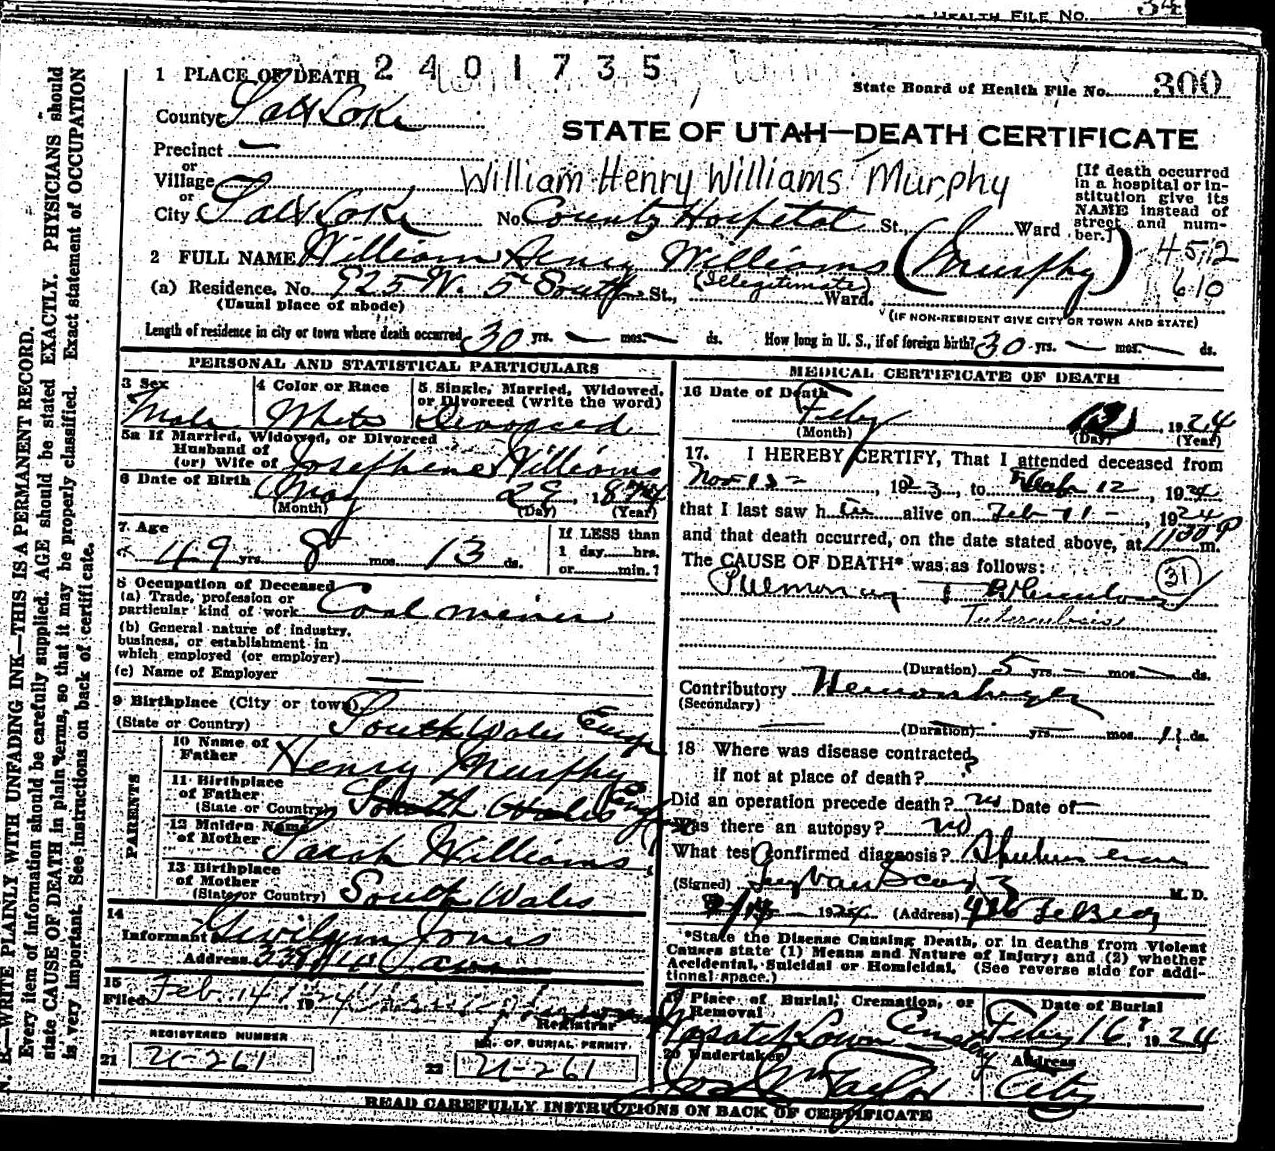 OR HEALTH FILE NO. 34
2401735
1 PLACE OF DEATH
State Board of Health File No. 300
County Salt Lake
STATE OF UTAH—DEATH CERTIFICATE
Precinct —
or
Village
William Henry Williams Murphy
or
City Salt Lake No. County Hospital St., Ward
[If death occurred in a hospital or institution give its NAME instead of street and number.]
2 FULL NAME William Henry Williams (Murphy)
4512
610
(a) Residence, No. 925 W. 5 South St., (Illegitimate) Ward.
(Usual place of abode)
(IF NON-RESIDENT GIVE CITY OR TOWN AND STATE)
Length of residence in city or town where death occurred 30 yrs. — mos. — ds. How long in U. S., if of foreign birth? 30 yrs. — mos. — ds.
PERSONAL AND STATISTICAL PARTICULARS
3 Sex
Male
4 Color or Race
White
5 Single, Married, Widowed, or Divorced (write the word)
Divorced
5a If Married, Widowed, or Divorced
Husband of
(or) Wife of Josephine Williams
6 Date of Birth May 29, 1874
(Month) (Day) (Year)
7. Age
49 yrs. 8 mos. 13 ds.
If LESS than
1 day.....hrs.
or.....min.?
8 Occupation of Deceased
(a) Trade, profession or
particular kind of work Coal miner
(b) General nature of industry,
business, or establishment in
which employed (or employer)
(c) Name of Employer —
9 Birthplace (City or town)
(State or Country) South Wales
PARENTS
10 Name of
Father Henry Murphy
11 Birthplace
of Father
(State or Country) South Wales
12 Maiden Name
of Mother Sarah Williams
13 Birthplace
of Mother
(State or Country) South Wales
14
Informant Gwilym Jones
Address
15
Filed Feb. 14 1924
Registrar
REGISTERED NUMBER
21 U-261
NO. OF BURIAL PERMIT.
22 U-261
MEDICAL CERTIFICATE OF DEATH
16 Date of Death
Feby 1924
(Month) (Day) (Year)
17. I HEREBY CERTIFY, That I attended deceased from
Nov 13, 1923, to Feb 12, 1924
that I last saw h im alive on Feb 11, 1924
and that death occurred, on the date stated above, at 1130 P m.
The CAUSE OF DEATH* was as follows:
31
Pulmonary Tuberculosis
Tuberculosis
(Duration) 5 yrs. — mos. — ds.
Contributory Hemorrhage
(Secondary)
(Duration) — yrs. — mos. ds.
18 Where was disease contracted
if not at place of death?
Did an operation precede death? no Date of —
Was there an autopsy? no
What test confirmed diagnosis? Sputum exam
(Signed) M. D.
1924 (Address)
*State the Disease Causing Death, or in deaths from Violent
Causes state (1) Means and Nature of Injury; and (2) whether
Accidental, Suicidal or Homicidal. (See reverse side for additional space.)
19 Place of Burial, Cremation, or
Removal
Wasatch Lawn Cemetery
Date of Burial
Feby 16, 1924
20 Undertaker
Jos. Wm Taylor
Address
City
READ CAREFULLY INSTRUCTIONS ON BACK OF CERTIFICATE
N. B.—WRITE PLAINLY WITH UNFADING INK—THIS IS A PERMANENT RECORD.
Every item of information should be carefully supplied. AGE should be stated EXACTLY. PHYSICIANS should
state CAUSE OF DEATH in plain terms, so that it may be properly classified. Exact statement of OCCUPATION
is very important. See instructions on back of certificate.